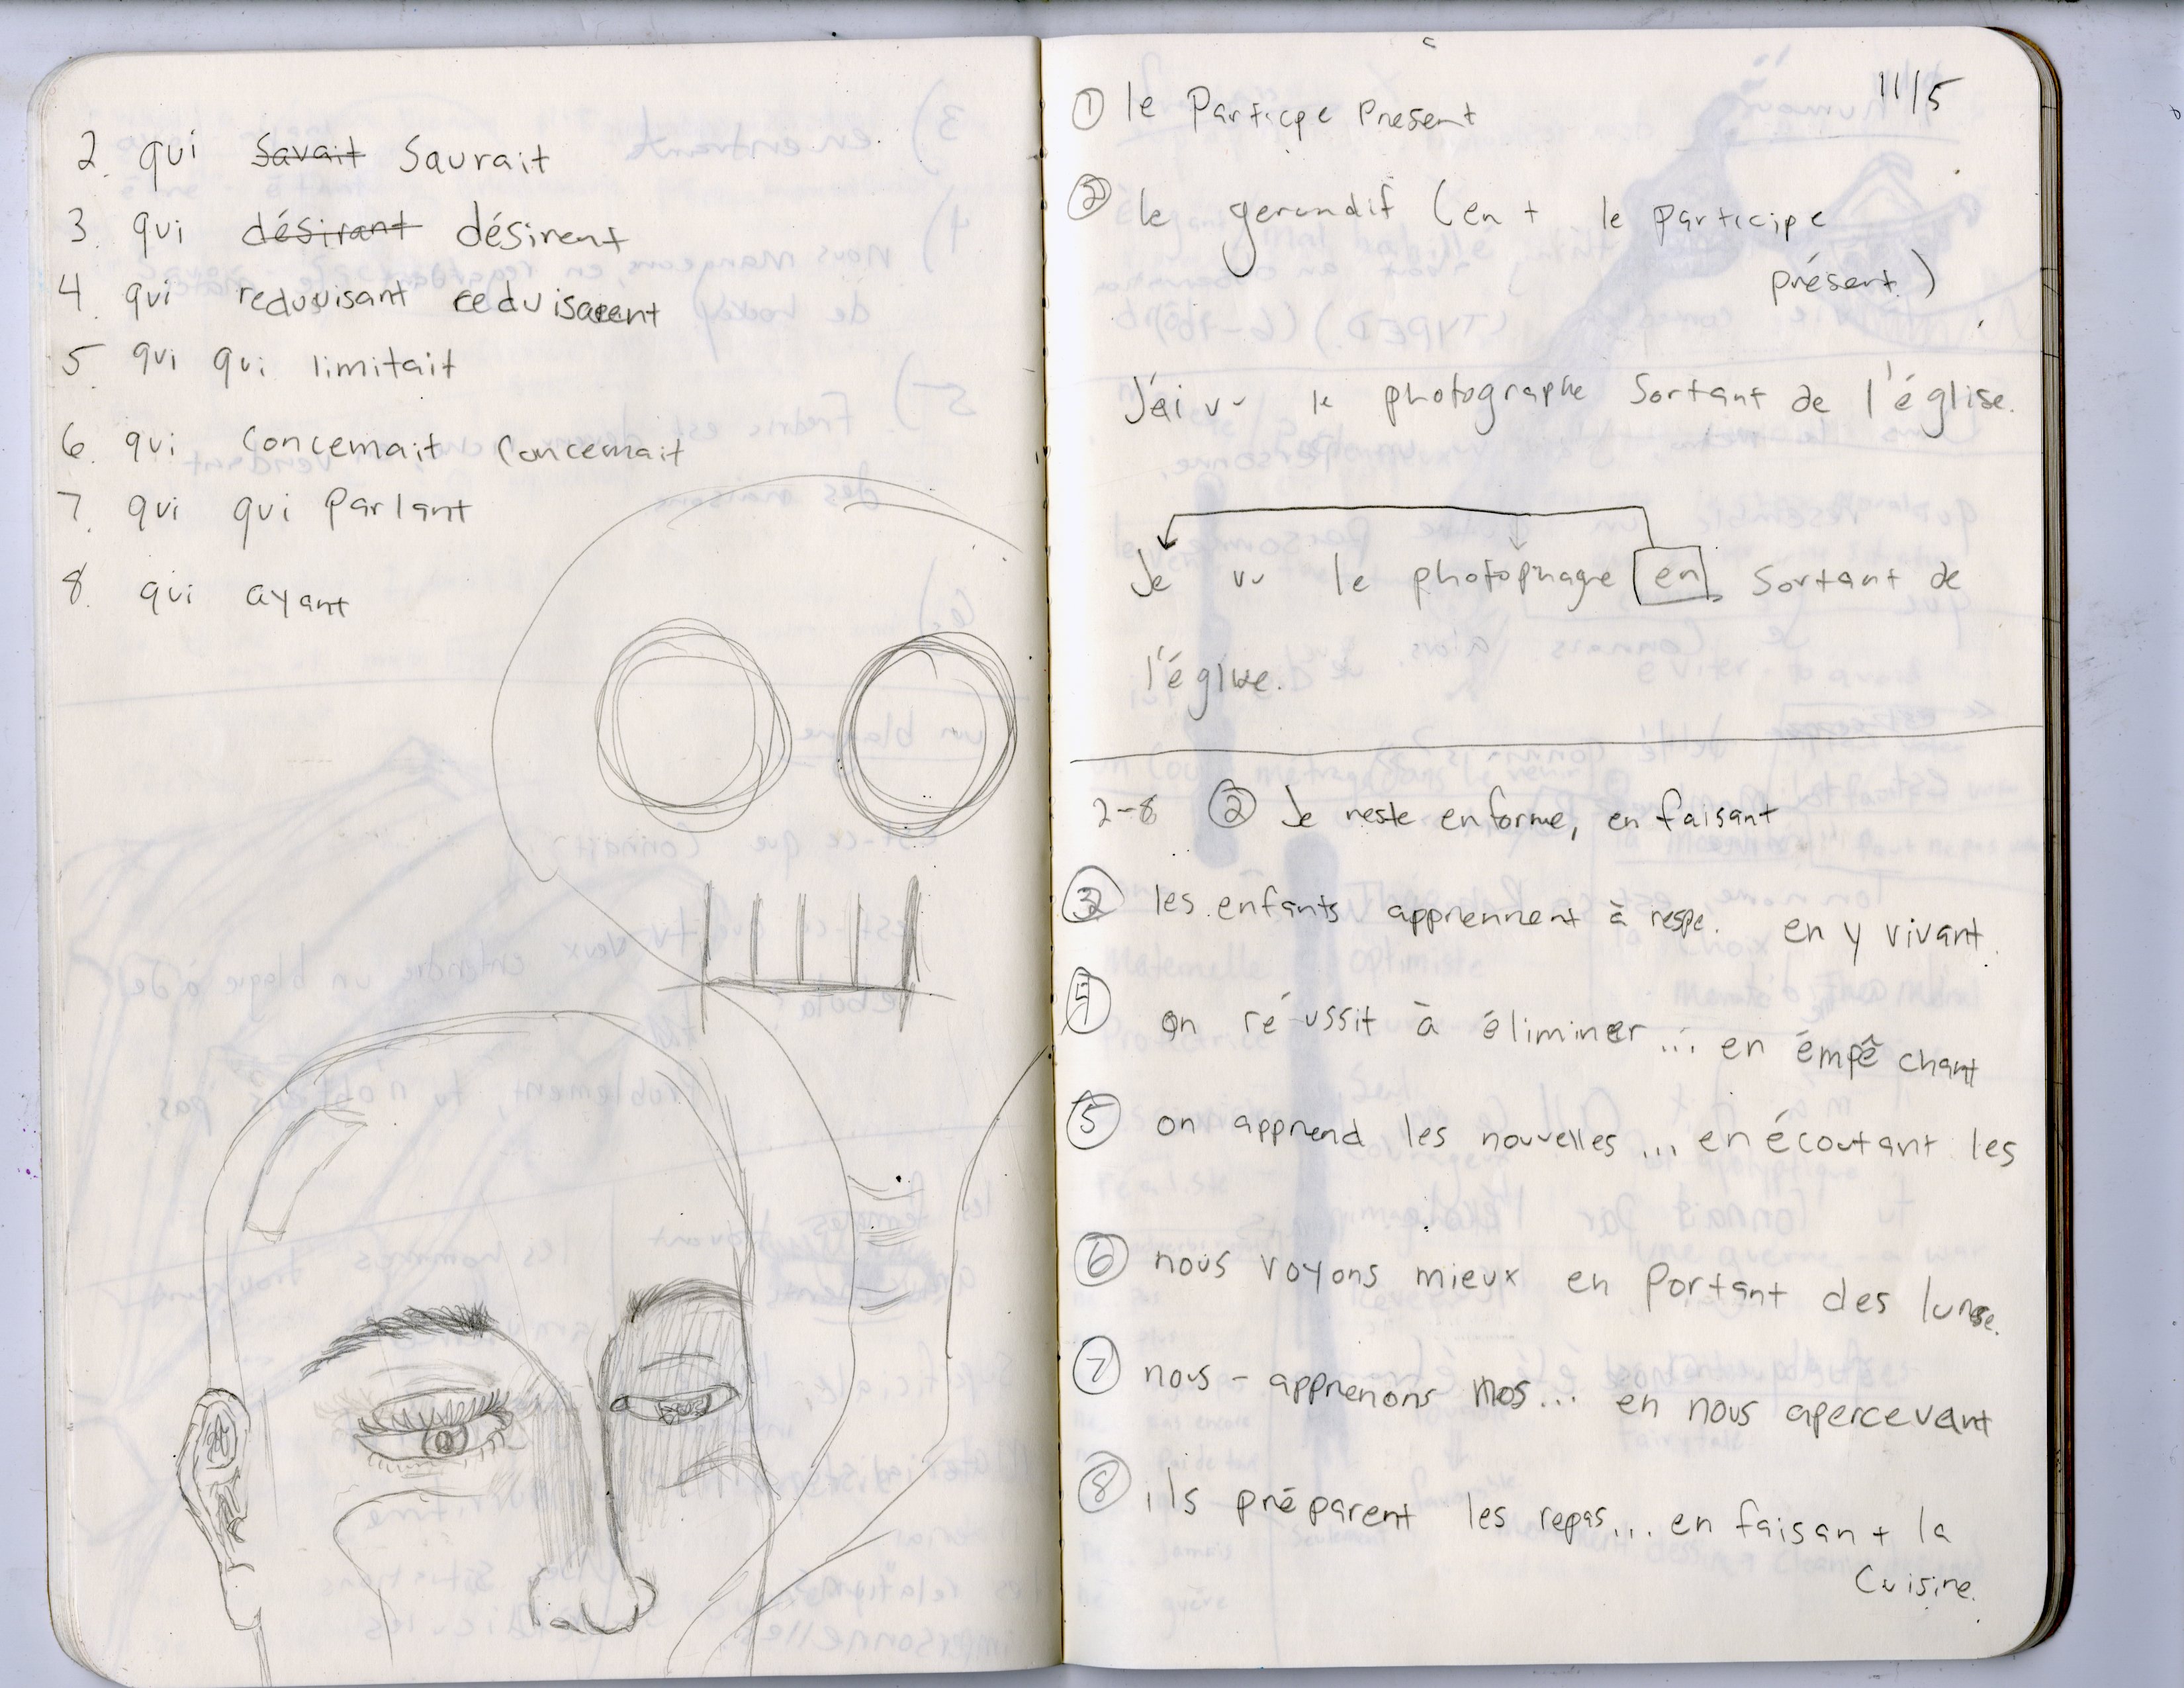 2. qui savait saurait
3. qui désirant désirent
4. qui reduuisant reduisaent
5. qui qui limitait
6. qui concernait concernait
7. qui qui parlant
8. qui ayant
11/5
① le Particpe Present
② le gerondif (en + le participe
présent.)
J'ai vu le photographe sortant de l'église.
Je vu le photophagre en sortant de
l'églize.
2-8 ② Je reste en forme, en faisant
③ les enfants apprennent à respe. en y vivant.
④ on réussit à éliminer... en émpêchant
⑤ on apprend les nouvelles ... en écoutant les
⑥ nous voyons mieux en Portant des
⑦ nous - apprenons nos... en nous apercevant
⑧ ils préparent les repas... en faisant la
Cuisine.